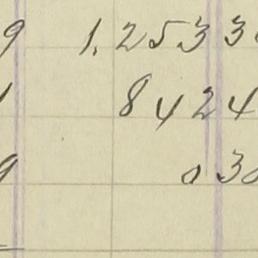 9 1,2533
1 8424
9 030